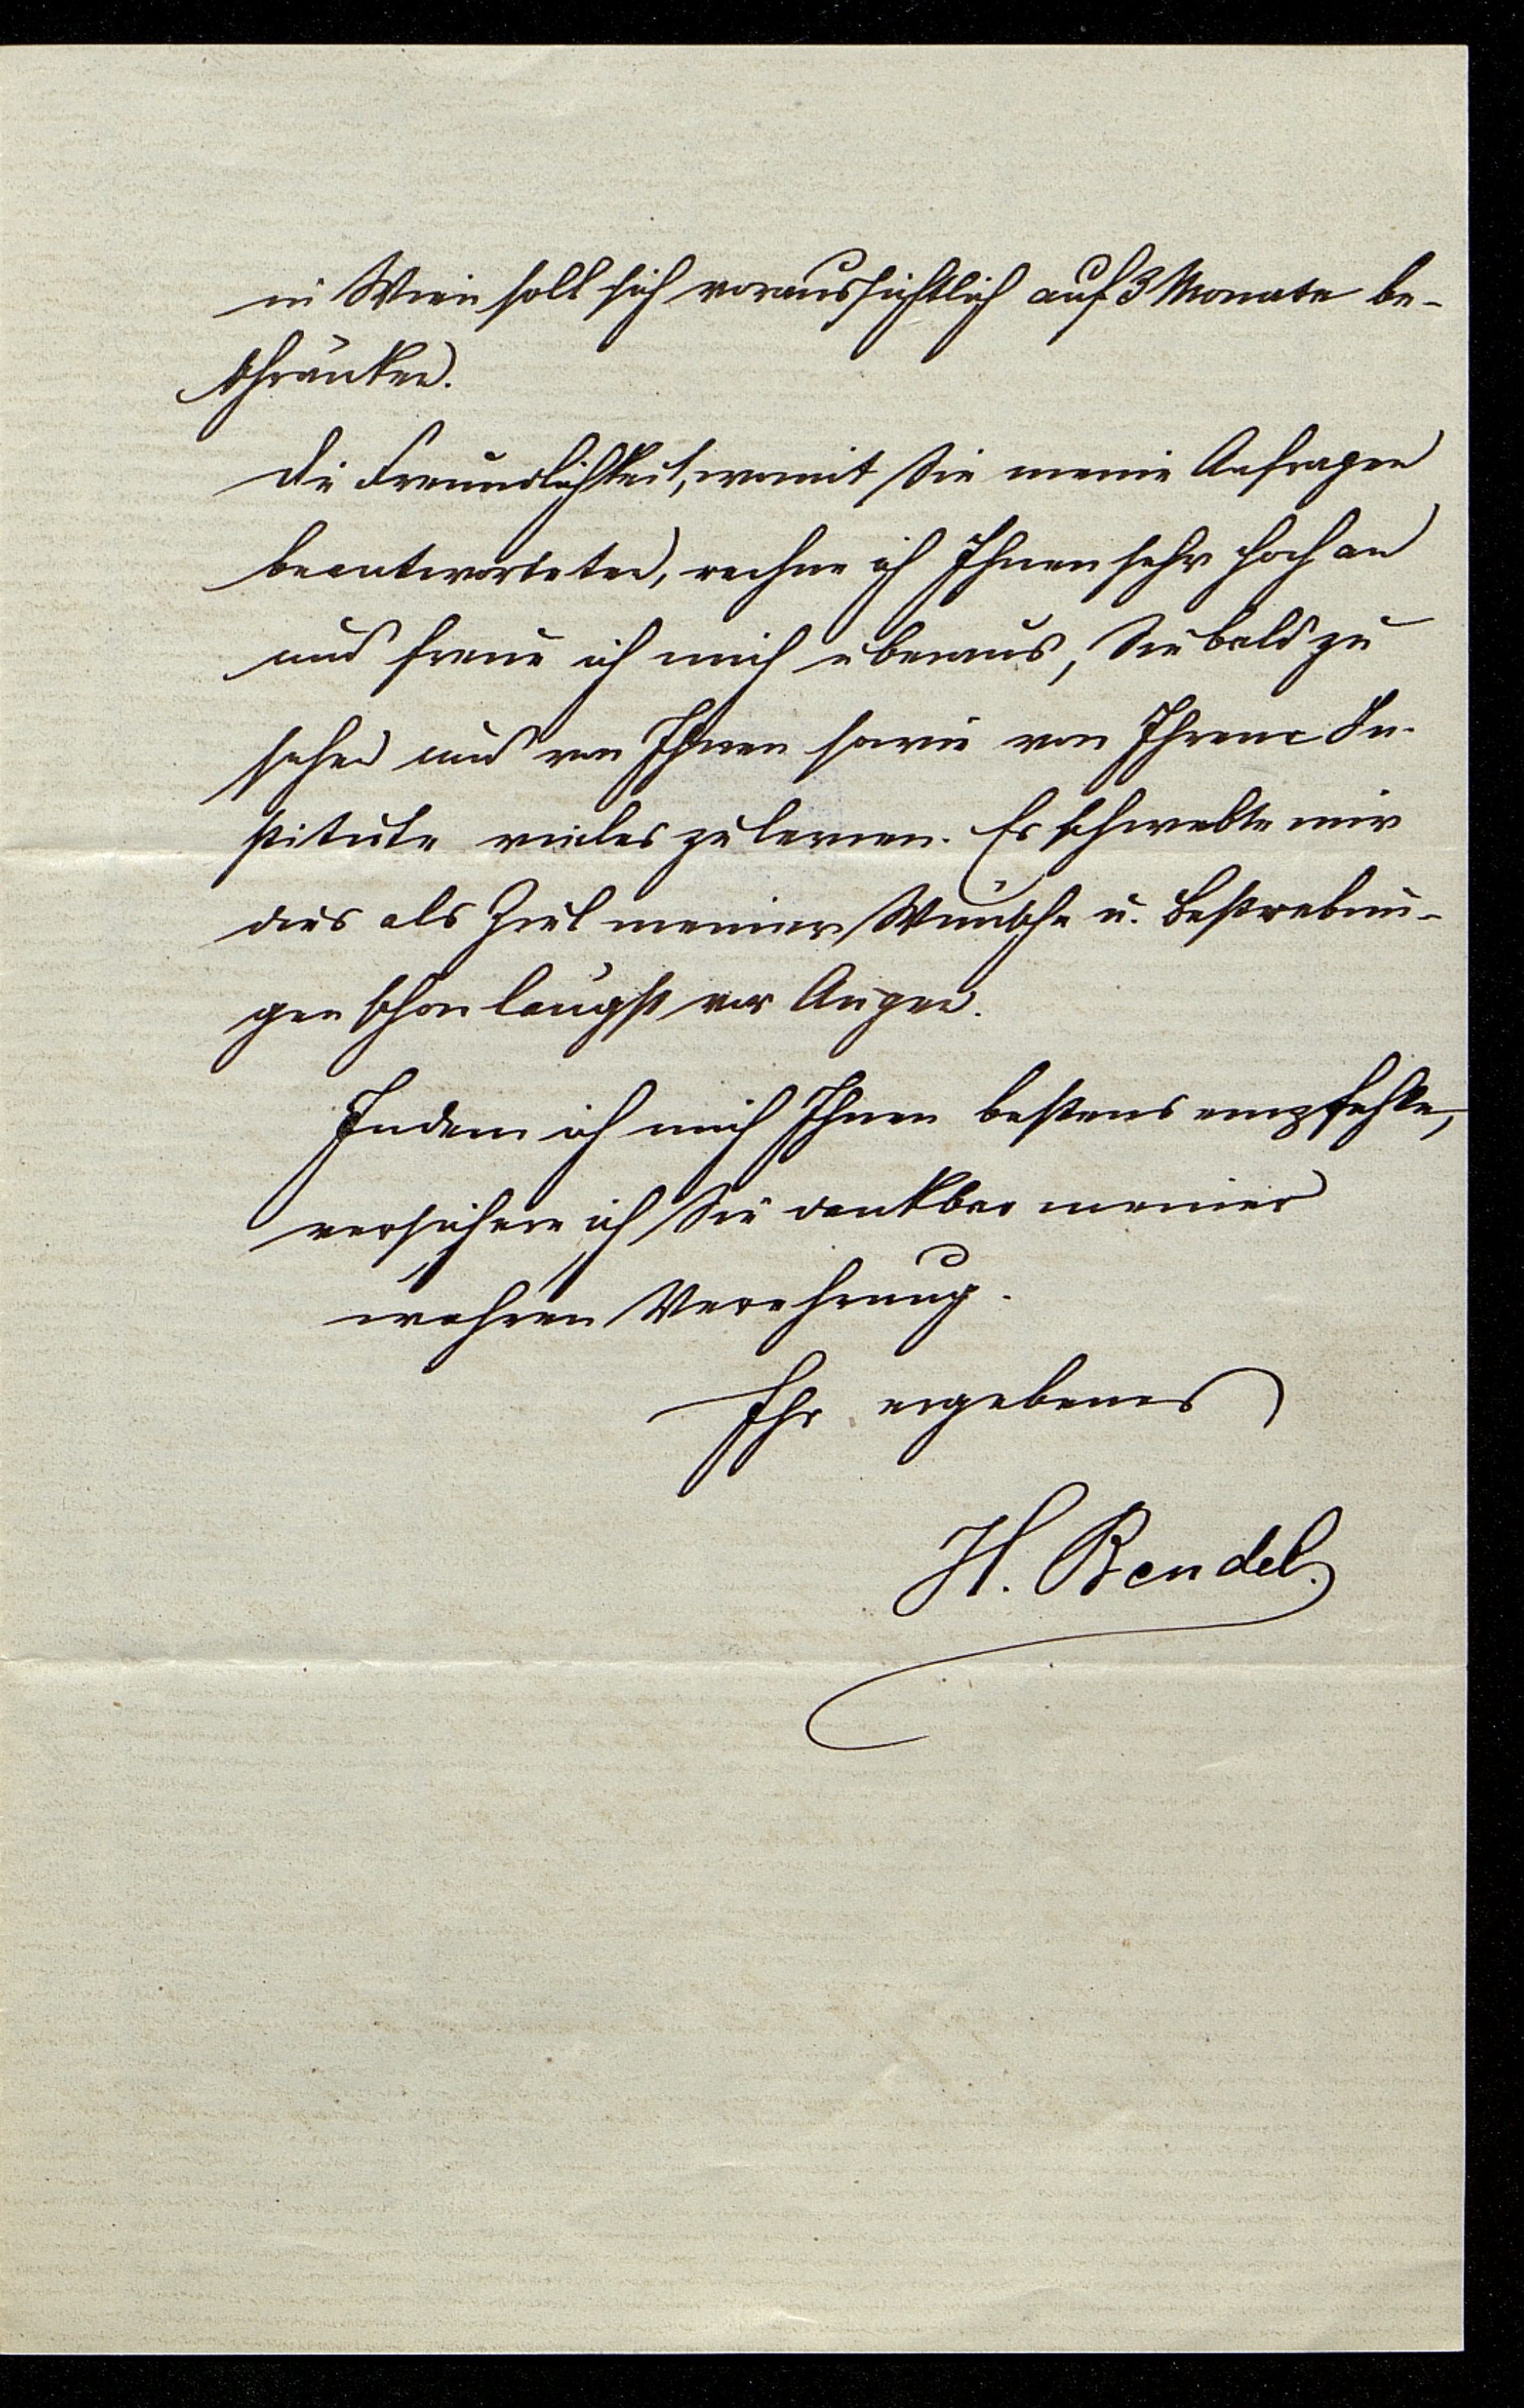 in Wien soll sich voraussichtlich auf 3 Monate be-
schränken.
Die Freundlichkeit, womit Sie meine Anfragen
beantworteten, rechne ich Ihnen sehr hoch an
und freue ich mich überaus, Sie bald zu
sehen und von Ihnen sowie von Ihrem In-
stitute vieles zu lernen. Es schwebte mir
dies als Ziel meiner Wünsche u. Bestrebun-
gen schon längst vor Augen.
Indem ich mich Ihnen bestens empfehle,
versichere ich Sie dankbar meiner
wahren Verehrung.
Ihr ergebener
H. Bendel.